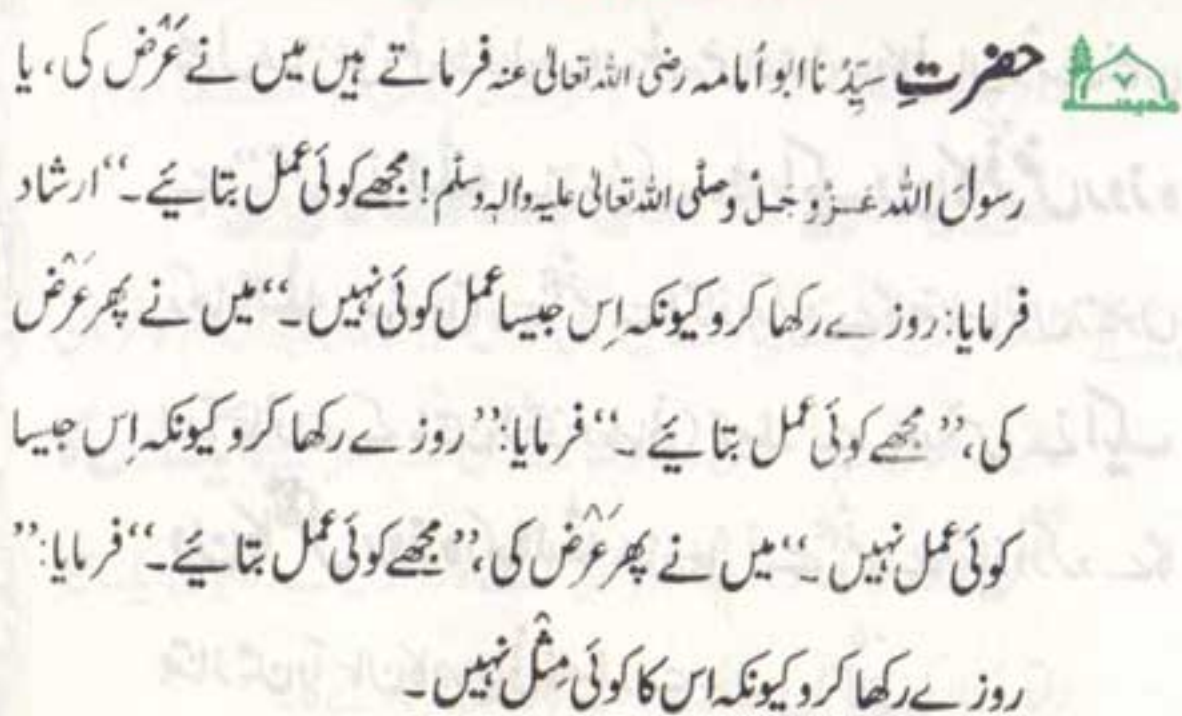 حضرتِ سیِّدُنا ابو اُمامہ رضی اللہ تعالیٰ عنہ فرماتے ہیں میں نے عَرْض کی، یا
رسولَ اللہ عَزَّوَجَلَّ وصلَّی اللہ تعالیٰ علیہ واٰلہٖ وسلَّم! مجھے کوئی عمل بتائیے۔‘‘ ارشاد
فرمایا: روزے رکھا کرو کیونکہ اِس جیسا عمل کوئی نہیں۔‘‘ میں نے پھر عَرْض
کی،’’ مجھے کوئی عمل بتائیے۔‘‘ فرمایا:’’ روزے رکھا کرو کیونکہ اِس جیسا
کوئی عمل نہیں۔‘‘ میں نے پھر عَرْض کی،’’ مجھے کوئی عمل بتائیے۔‘‘ فرمایا:’’
روزے رکھا کرو کیونکہ اس کا کوئی مِثْل نہیں۔